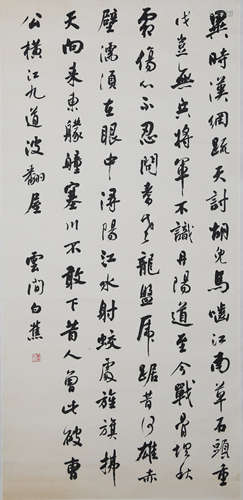 異時漢網疏天討胡兒馬嚙江南草石頭重
戍豈無兵將軍不識丹陽道至今戰骨埋秋
霜傷心不忍問耆老龍盤虎踞昔何雄赤
壁濡須在眼中潯陽江水射蛟處旌旗拂
天向來東艨艟塞川不敢下昔人曾此破曹
公橫江九道波翻屋 雲間白蕉